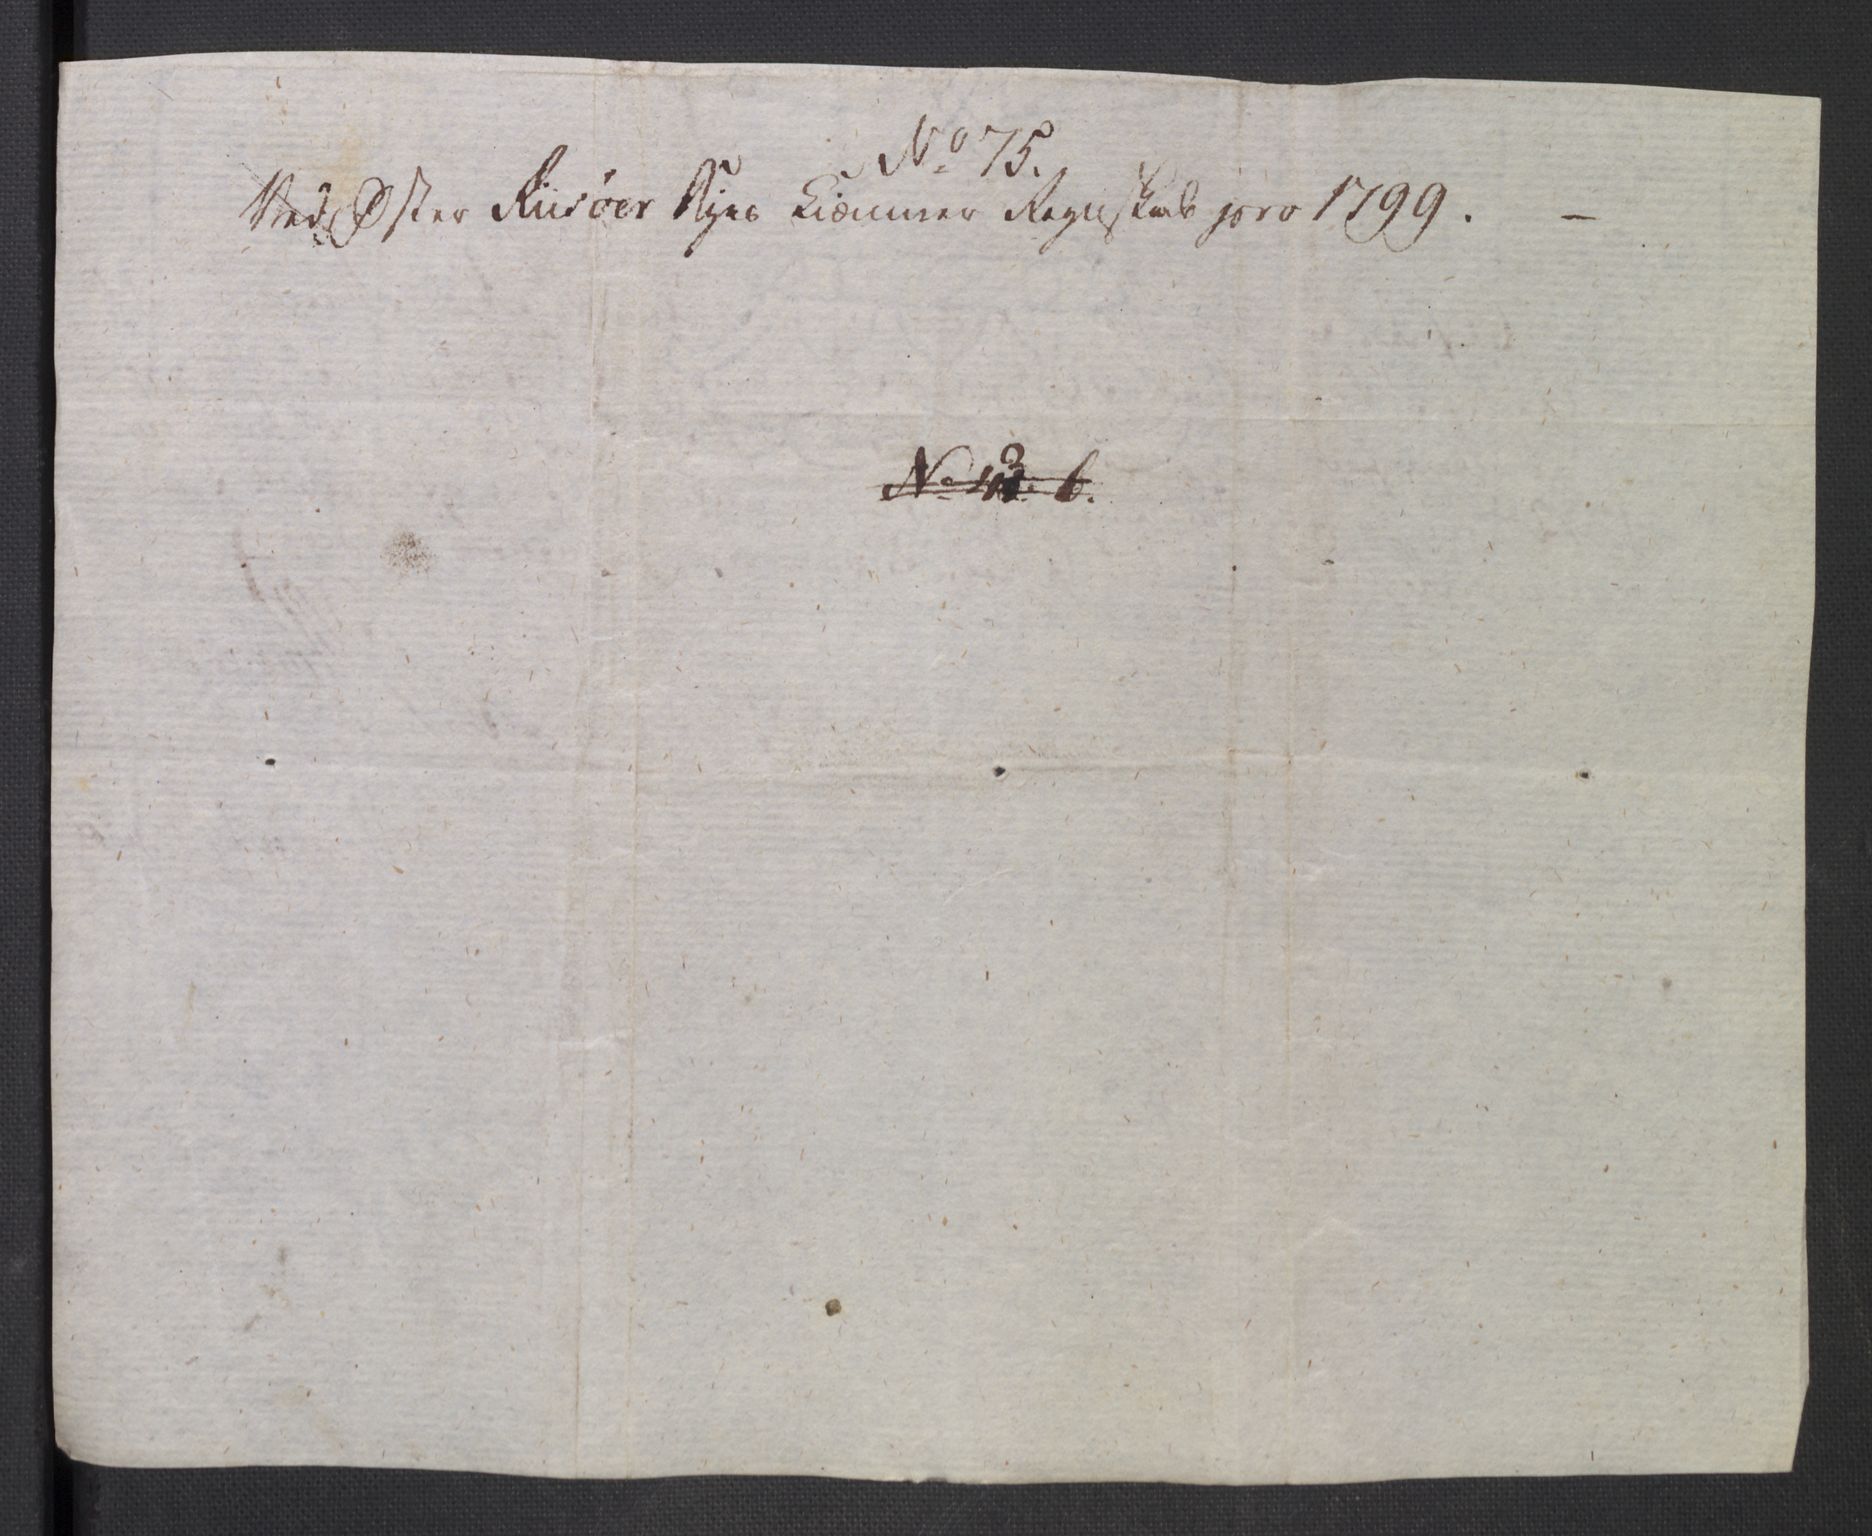 No 75.
Ved Øster Riisøer Byes Kiæmner Regnskab pro 1799. —
No
b.